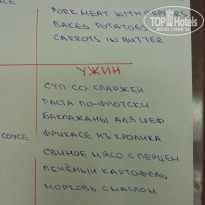 PORK MEAT WITH PEPPERS
BAKED POTATOES
CARROTS IN BUTTER
УЖИН
СУП СО СПАРЖЕЙ
ПАСТА ПО-ФЛОТСКИ
БАКЛАЖАНЫ ДЛЯ ШЕФ
ФРИКАСЕ ИЗ КРОЛИКА
SOYCE
СВИНОЕ МЯСО С ПЕРЦЕМ
ПЕЧЁНЫЙ КАРТОФЕЛЬ
МОРКОВЬ С МАСЛОМ
TopHotels